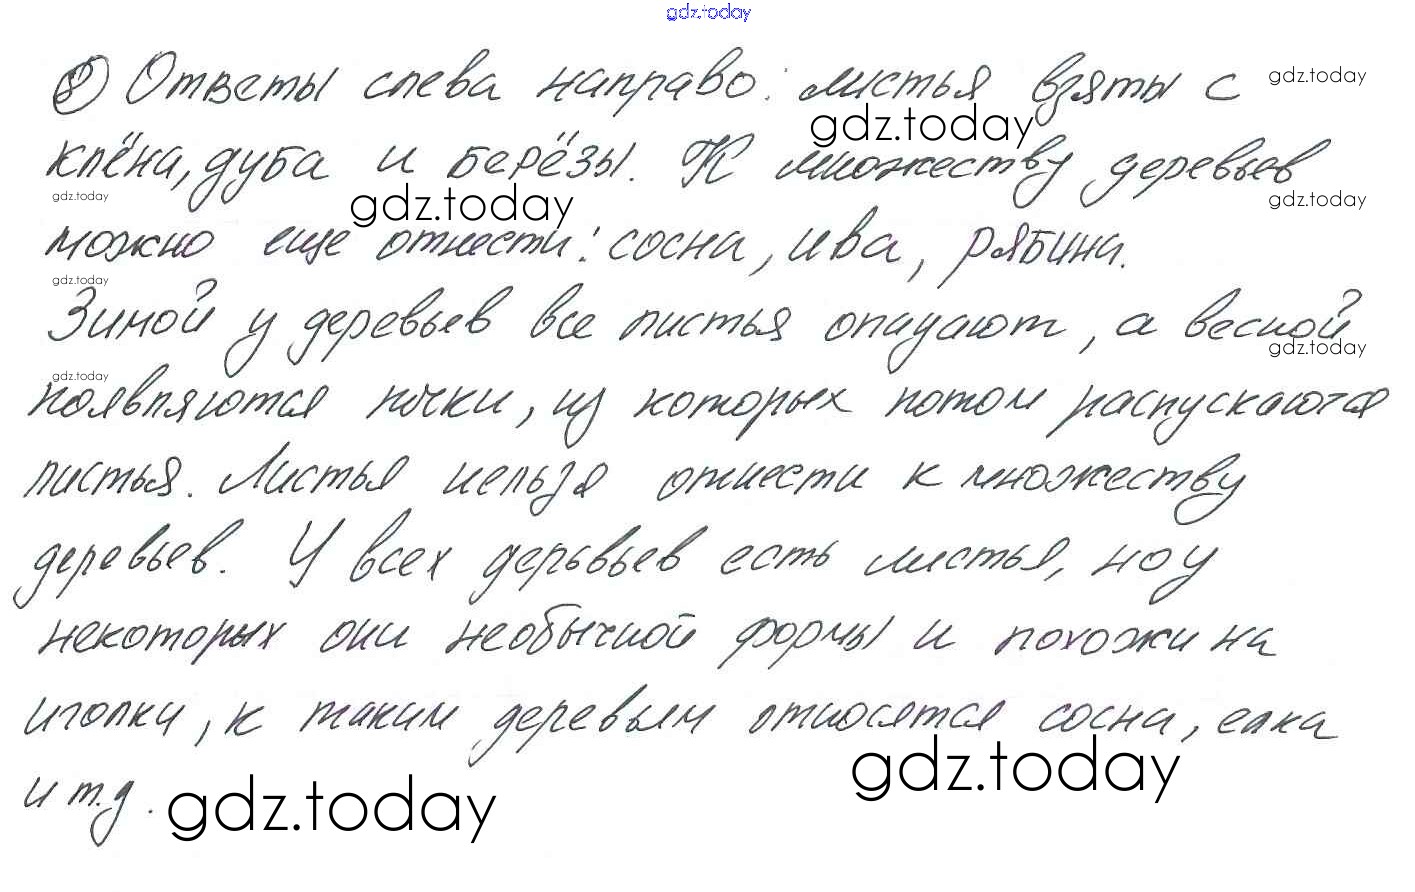 gdz.today
8) Ответы слева направо: листья взяты с
gdz.today
gdz.today
клёна, дуба и берёзы. К множеству деревьев
gdz.today
gdz.today
gdz.today
можно еще отнести: сосна, ива, рябина.
gdz.today
Зимой у деревьев все листья опадают, а весной
gdz.today
gdz.today
появляются почки, из которых потом распускаются
листья. Листья нельзя отнести к множеству
деревьев. У всех деревьев есть листья, но у
некоторых они необычной формы и похожи на
иголки, к таким деревьям относятся сосна, елка
gdz.today
и т.д.
gdz.today